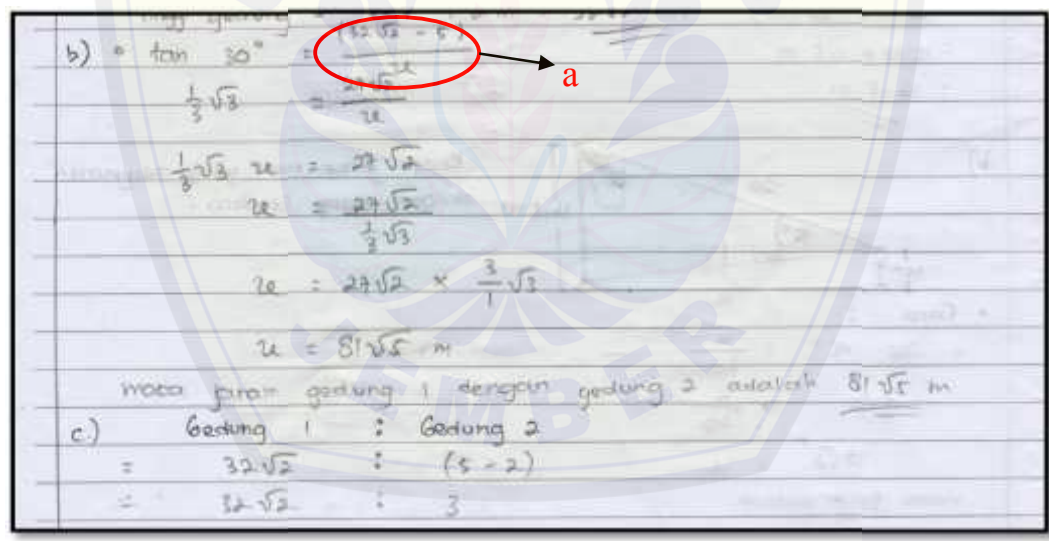 b) • tan 30° = (32√2 - 5) / x
a
1/3 √3 = 27√2 / x
1/3 √3 x = 27√2
x = 27√2 / 1/3 √3
x = 27√2 × 3/1 √3
x = 81√5 m
maca jarak gedung 1 dengan gedung 2 adalah 81√5 m
c.) Gedung 1 : Gedung 2
= 32√2 : (5 - 2)
= 32√2 : 3
EMBER